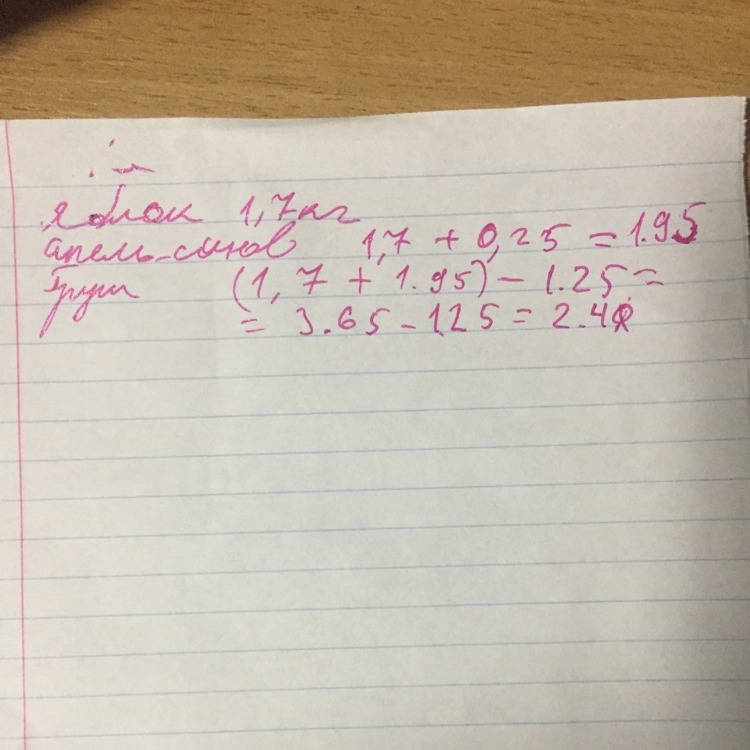 яблок 1,7кг
апельсинов 1,7 + 0,25 = 1.95
Груш (1,7 + 1.95) - 1.25 =
= 3.65 - 1.25 = 2.40